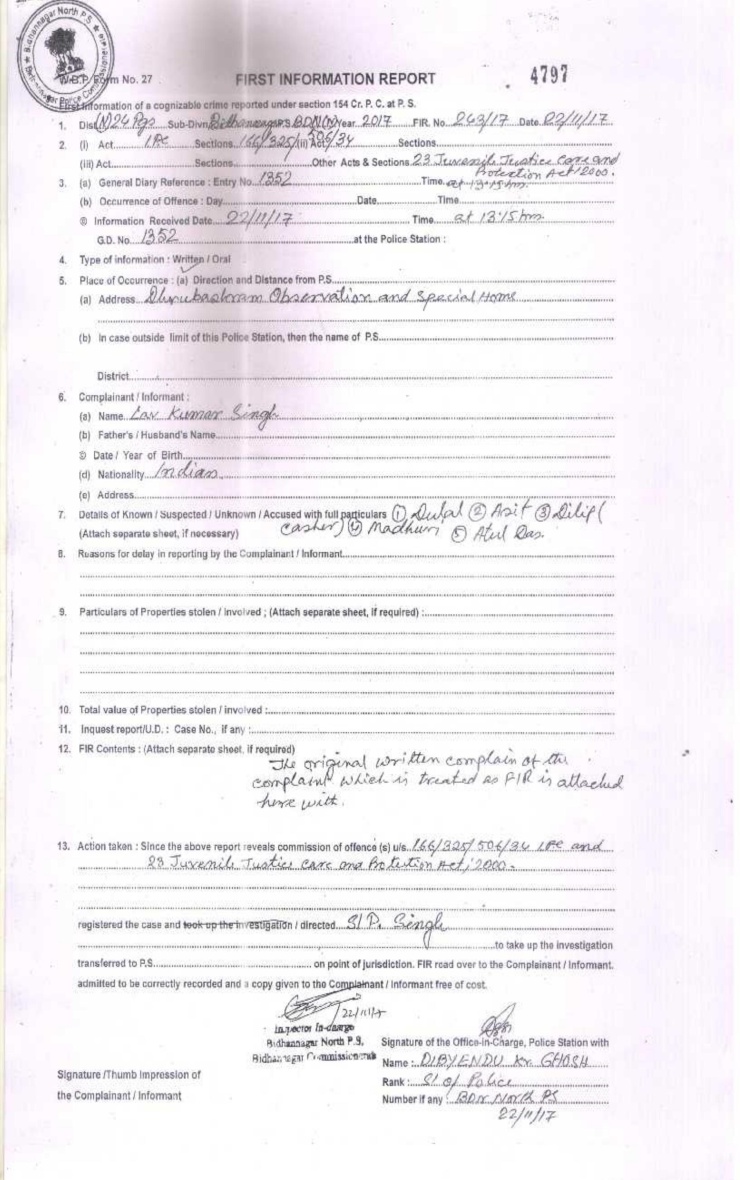 Bidhannagar North P.S.
W.B.P. Form No. 27 FIRST INFORMATION REPORT 4797
First Information of a cognizable crime reported under section 154 Cr. P. C. at P. S.
1. Dist (N) 24 Pgs Sub-Divn Bidhannagar P.S. BDN(N) Year 2017 FIR. No. 263/17 Date 22/11/17
2. (i) Act IPC Sections 166/325/506/34 (ii) Act Sections
(iii) Act Sections Other Acts & Sections 23 Juvenile Justice Care and Protection Act 2000.
3. (a) General Diary Reference : Entry No. 1352 Time at 13:15 hrs
(b) Occurrence of Offence : Day Date Time
© Information Received Date 22/11/17 Time at 13:15 hrs
G.D. No. 1352 at the Police Station :
4. Type of information : Written / Oral
5. Place of Occurrence : (a) Direction and Distance from P.S.
(a) Address Dhrubashram Observation and Special Home
(b) In case outside limit of this Police Station, then the name of P.S.
District
6. Complainant / Informant :
(a) Name Lav Kumar Singh
(b) Father's / Husband's Name
© Date / Year of Birth
(d) Nationality Indian
(e) Address
7. Details of Known / Suspected / Unknown / Accused with full particulars ① Dulal ② Asit ③ Dilip (
(Attach separate sheet, if necessary) casher) ④ Madhuri ⑤ Atul Das.
8. Reasons for delay in reporting by the Complainant / Informant
9. Particulars of Properties stolen / Involved ; (Attach separate sheet, if required) :
10. Total value of Properties stolen / involved :
11. Inquest report/U.D. : Case No., if any :
12. FIR Contents : (Attach separate sheet, if required)
The original written complain of the
complaint which is treated as FIR is attached
here with.
13. Action taken : Since the above report reveals commission of offence (s) u/s. 166/325/506/34 IPC and
23 Juvenile Justice Care and Protection Act, 2000.
registered the case and took up the investigation / directed SI P. Singh
to take up the investigation
transferred to P.S. on point of jurisdiction. FIR read over to the Complainant / Informant.
admitted to be correctly recorded and a copy given to the Complainant / Informant free of cost.
22/11/17
Inspector In-charge
Bidhannagar North P.S.
Bidhannagar Commissionerate
Signature of the Office-in-Charge, Police Station with
Name : DIBYENDU Kr. GHOSH
Rank : SI of Police
Number if any : BDN North PS
22/11/17
Signature /Thumb Impression of
the Complainant / Informant